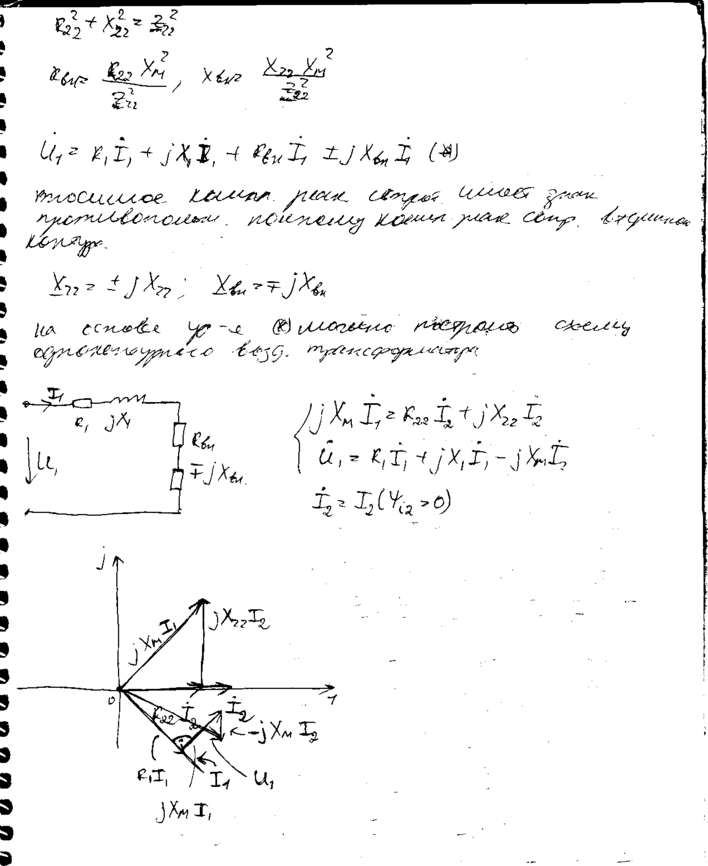 R₂₂² + X₂₂² = Z₂₂²
Rвн = R₂₂ Xм² / Z₂₂² , Xвн = X₂₂ Xм² / Z₂₂²
U̇₁ = R₁ İ₁ + jX₁ İ₁ + Rвн İ₁ ± jXвн İ₁ (*)
вносимое компл. реак сопрот. имеет знак
противополож. полному компл реак сопр. вторичного
контура.
X₂₂ = ± jX₂₂ ; Xвн = ∓ jXвн
на основе ур-е (*) можно построить схему
одноконтурного возд. трансформатора
I₁
R₁ jX₁
Rвн
U₁
∓jXвн
jXм İ₁ = R₂₂ İ₂ + jX₂₂ İ₂
U̇₁ = R₁ İ₁ + jX₁ İ₁ - jXм İ₂
İ₂ = I₂ (Ψi₂ > 0)
j
jXм I₁
jX₂₂ I₂
0
1
R₂₂ İ₂
İ₂
-jXм I₂
R₁I₁
I₁
U₁
jXм I₁